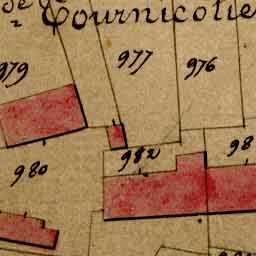 de Tournicotie
979
977
976
980
982
98